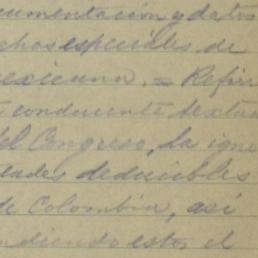 cumentación y datos
chos especiales de
mexicana. = Refir
conducente textu
del Congreso, la igno
tades deducibles
de Colombia, así
ndiendo estos el